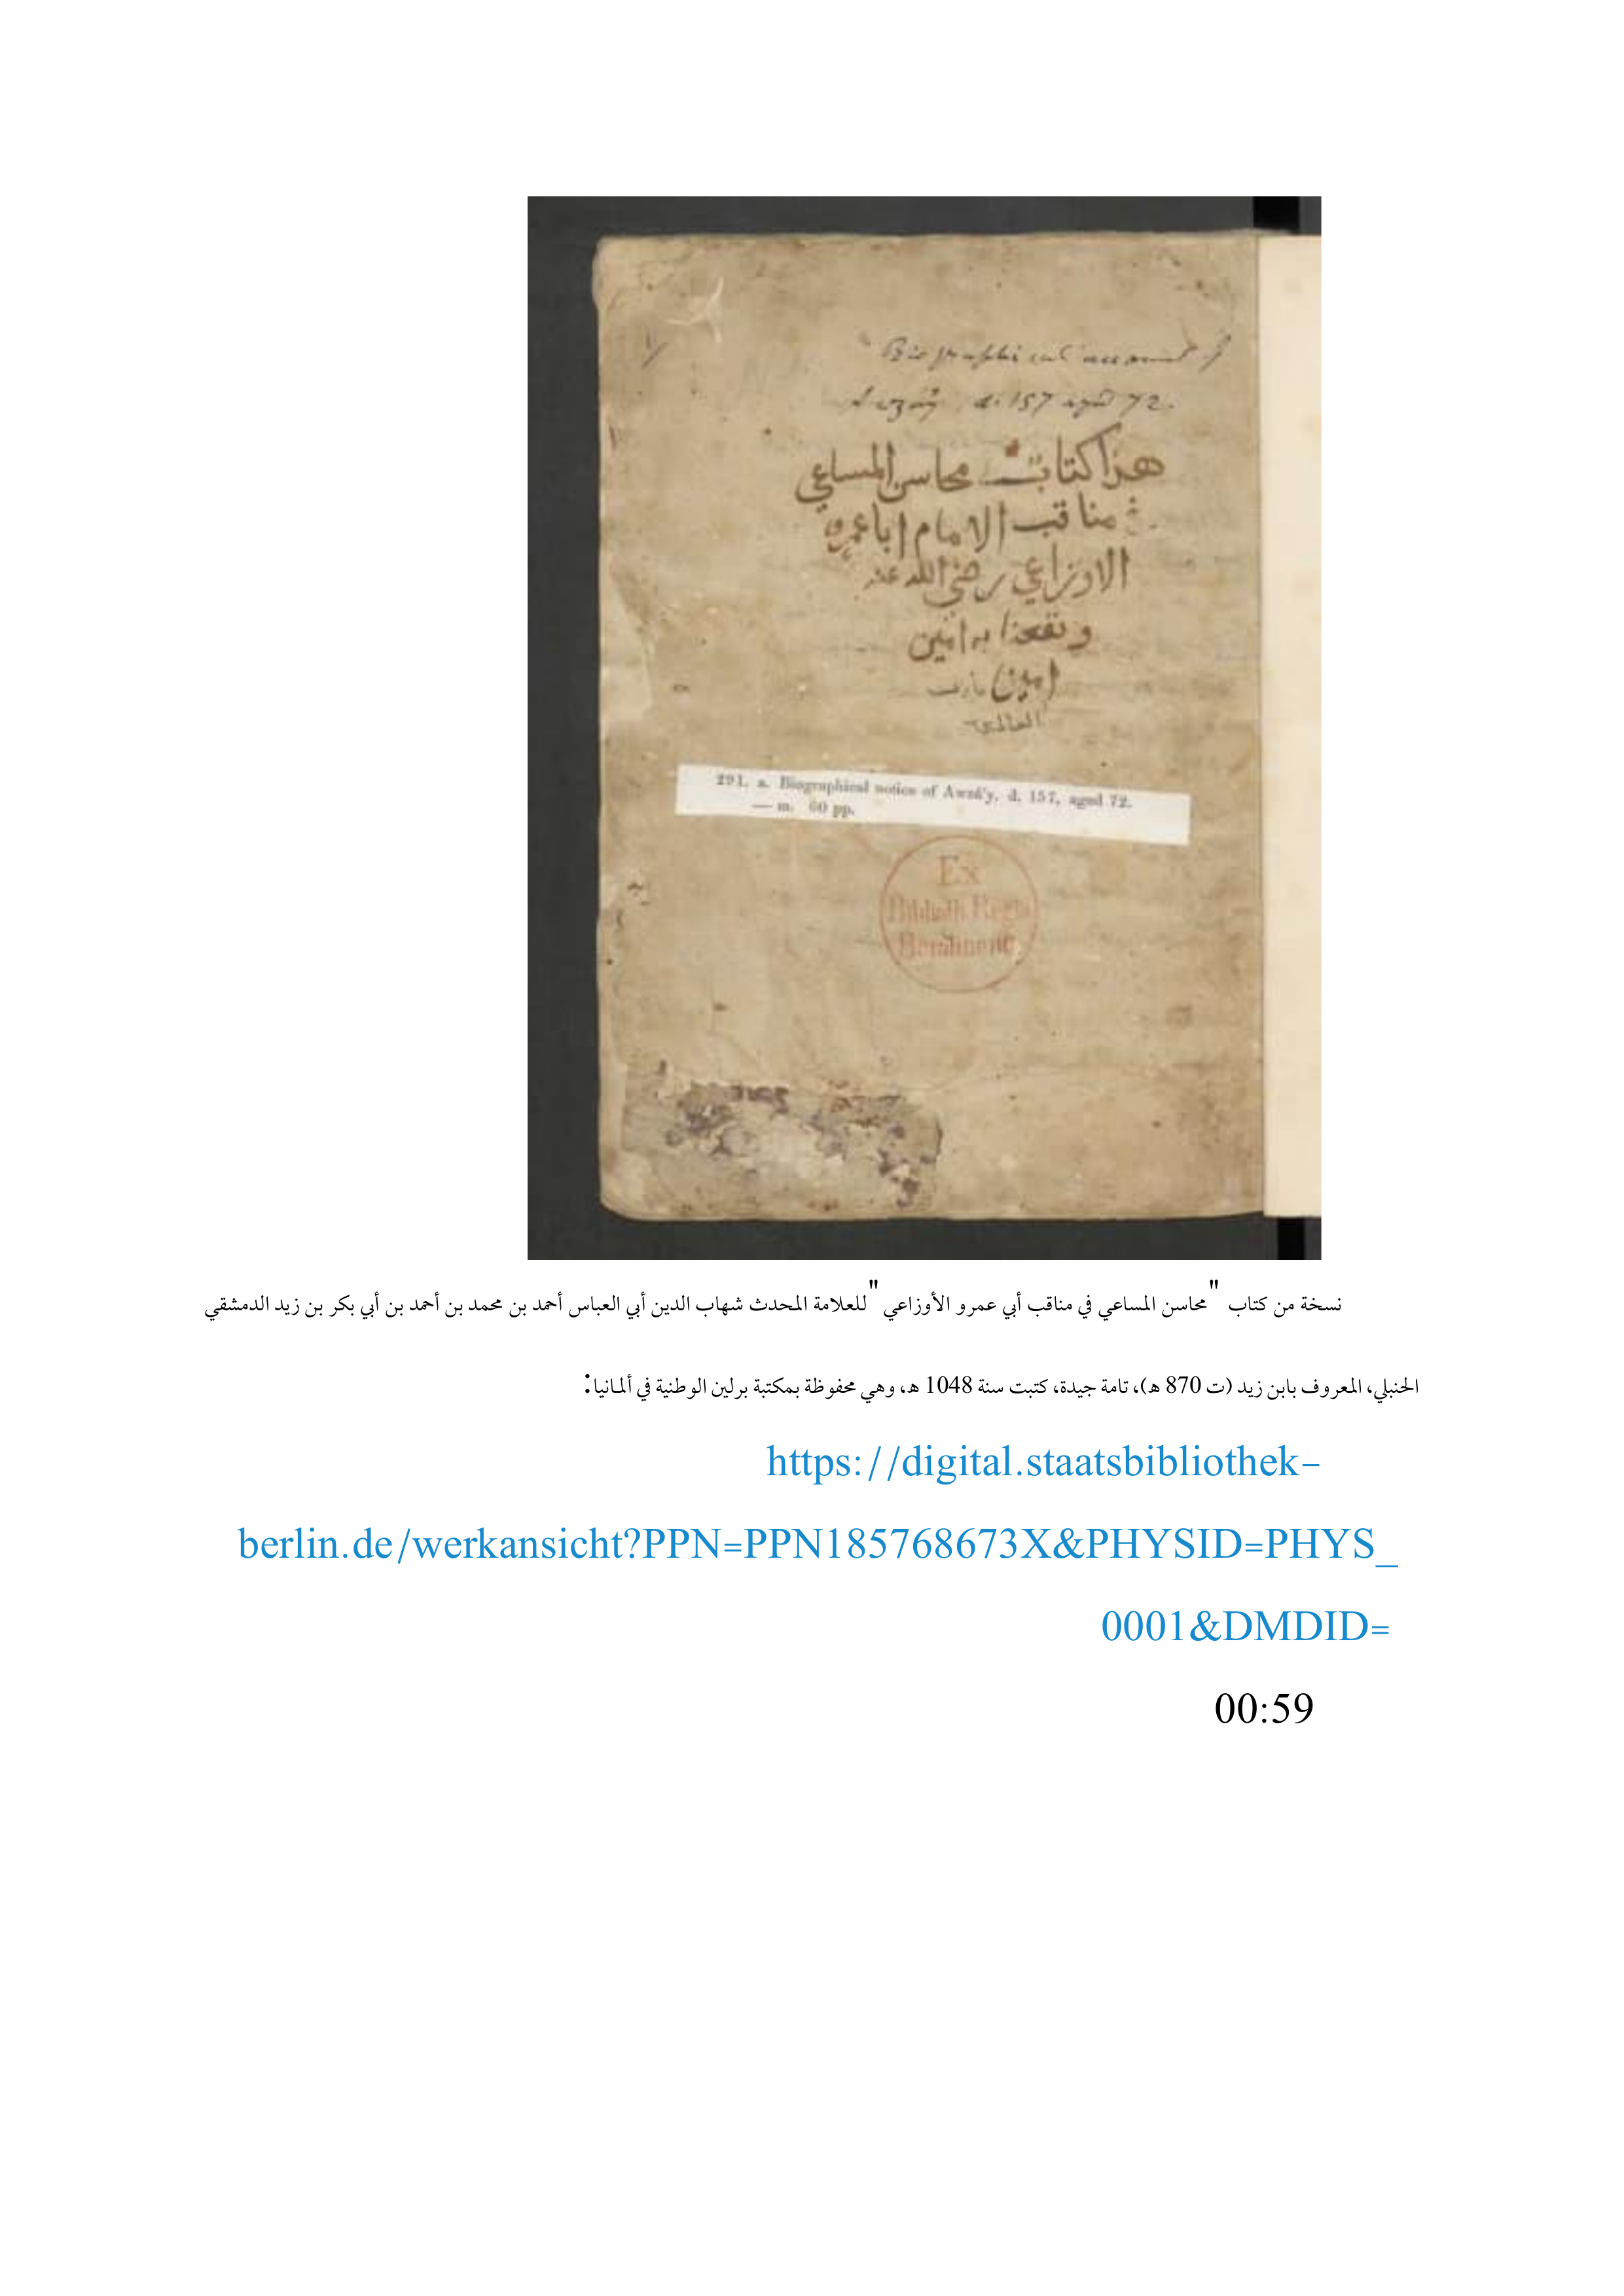 Biographical account of
d. 157 aged 72.
هذا كتاب محاسن المساعي
في مناقب الامام ابا عمرو
الاوزاعي رضي الله عنه
ونفعنا به امين
امين يارب
العالمين
291. a. Biographical notice of Awzá'y, d. 157, aged 72.
— m. 60 pp.
Ex
Biblioth. Regia
Berolinens.
نسخة من كتاب "محاسن المساعي في مناقب أبي عمرو الأوزاعي" للعلامة المحدث شهاب الدين أبي العباس أحمد بن محمد بن أحمد بن أبي بكر بن زيد الدمشقي
الحنبلي، المعروف بابن زيد (ت 870 هـ)، تامة جيدة، كتبت سنة 1048 هـ، وهي محفوظة بمكتبة برلين الوطنية في ألمانيا:
https://digital.staatsbibliothek-
berlin.de/werkansicht?PPN=PPN185768673X&PHYSID=PHYS_
0001&DMDID=
00:59